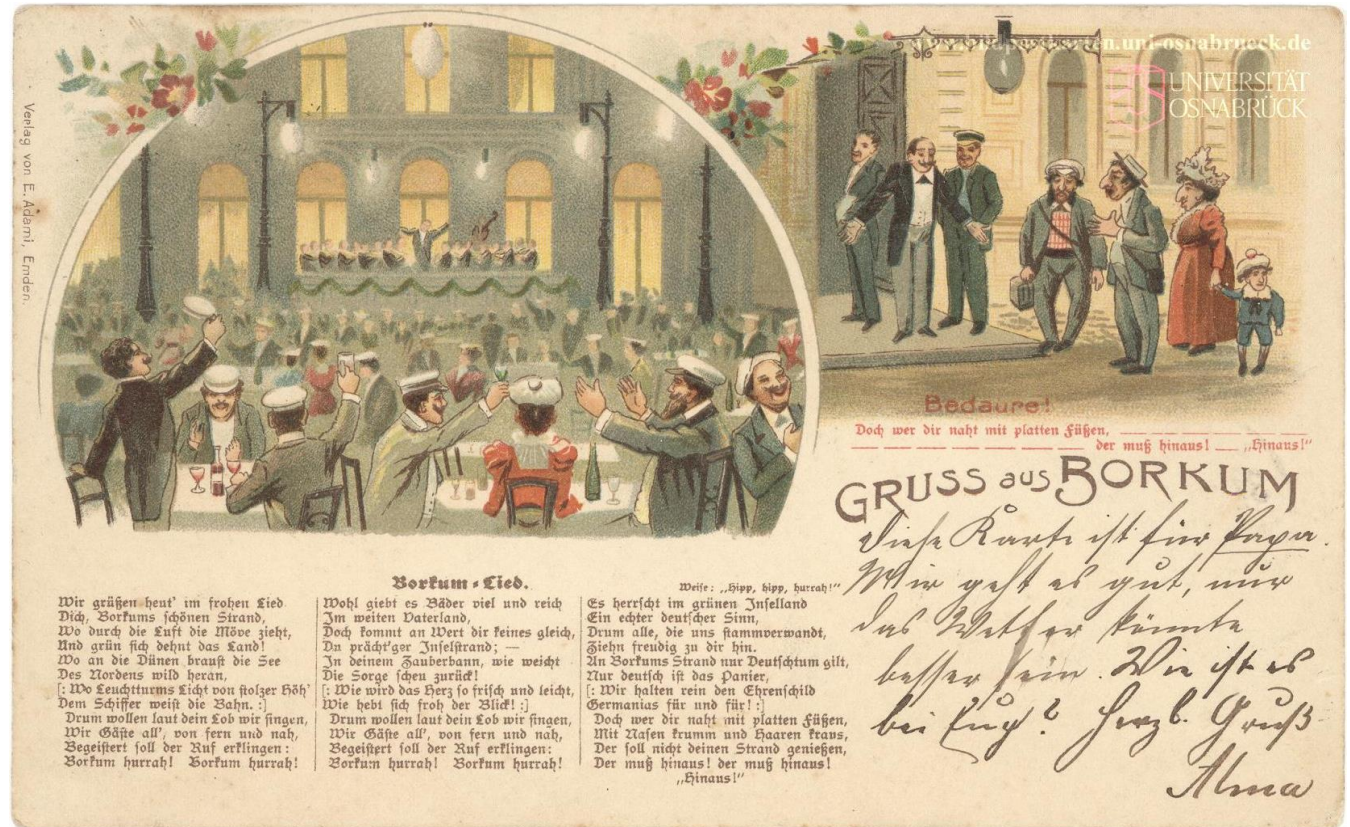 www.bildpostkarten.uni-osnabrueck.de
UNIVERSITÄT
OSNABRÜCK
Verlag von E. Adami, Emden.
Bedaure!
Doch wer dir naht mit platten Füßen,
der muß hinaus! — „Hinaus!“
GRUSS aus BORKUM
Diese Karte ist für Papa.
Mir geht es gut, nur
das Wetter könnte
besser sein. Wie ist es
bei Euch? Herzl. Gruß
Alma
Borkum-Lied.
Weise: „Hipp, hipp, hurrah!“
Wir grüßen heut' im frohen Lied
Dich, Borkums schönen Strand,
Wo durch die Luft die Möve zieht,
Und grün sich dehnt das Land!
Wo an die Dünen braust die See
Des Nordens wild heran,
[: Wo Leuchtturms Licht von stolzer Höh'
Dem Schiffer weist die Bahn. :]
Drum wollen laut dein Lob wir singen,
Wir Gäste all', von fern und nah,
Begeistert soll der Ruf erklingen:
Borkum hurrah! Borkum hurrah!
Wohl giebt es Bäder viel und reich
Im weiten Vaterland,
Doch kommt an Wert dir keines gleich,
Du prächt'ger Inselstrand; —
In deinem Zauberbann, wie weicht
Die Sorge scheu zurück!
[: Wie wird das Herz so frisch und leicht,
Wie hebt sich froh der Blick! :]
Drum wollen laut dein Lob wir singen,
Wir Gäste all', von fern und nah,
Begeistert soll der Ruf erklingen:
Borkum hurrah! Borkum hurrah!
Es herrscht im grünen Inselland
Ein echter deutscher Sinn,
Drum alle, die uns stammverwandt,
Ziehn freudig zu dir hin.
An Borkums Strand nur Deutschtum gilt,
Nur deutsch ist das Panier,
[: Wir halten rein den Ehrenschild
Germanias für und für! :]
Doch wer dir naht mit platten Füßen,
Mit Nasen krumm und Haaren kraus,
Der soll nicht deinen Strand genießen,
Der muß hinaus! der muß hinaus!
„Hinaus!“